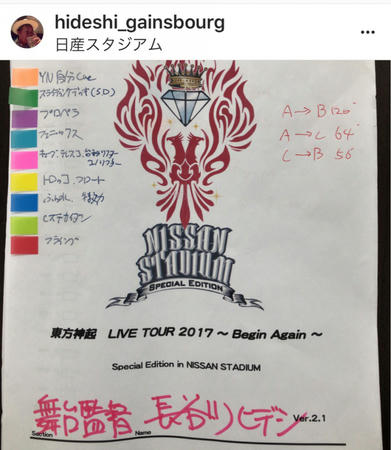 hideshi_gainsbourg
日産スタジアム
YN 自分Cue
スライディングデッキ(S.D)
プロペラ
フェニックス
トロッコ、フロート
フライング
A→B 120°
A→C 64°
C→B 56°
NISSAN
STADIUM
SPECIAL EDITION
東方神起 LIVE TOUR 2017 ～ Begin Again ～
Special Edition in NISSAN STADIUM
舞台監督 長谷川ヒデシ
Ver.2.1
Section
Name